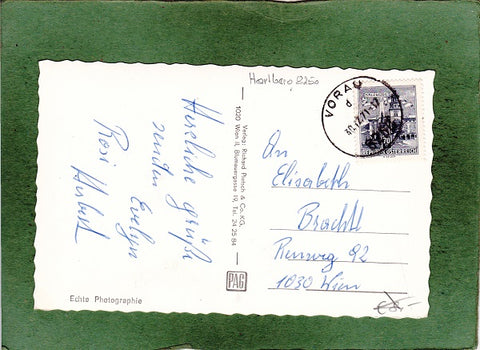 Hartberg 8250
Herzliche Grüße
senden Evelyn
Rosi Herbert
Verlag: Richard Pietsch & Co. KG.
1020 Wien II, Blumauergasse 19, Tel. 24 25 84
PAG
Echte Photographie
VORAU
An
Elisabeth
Brachtl
Rennweg 92
1030 Wien